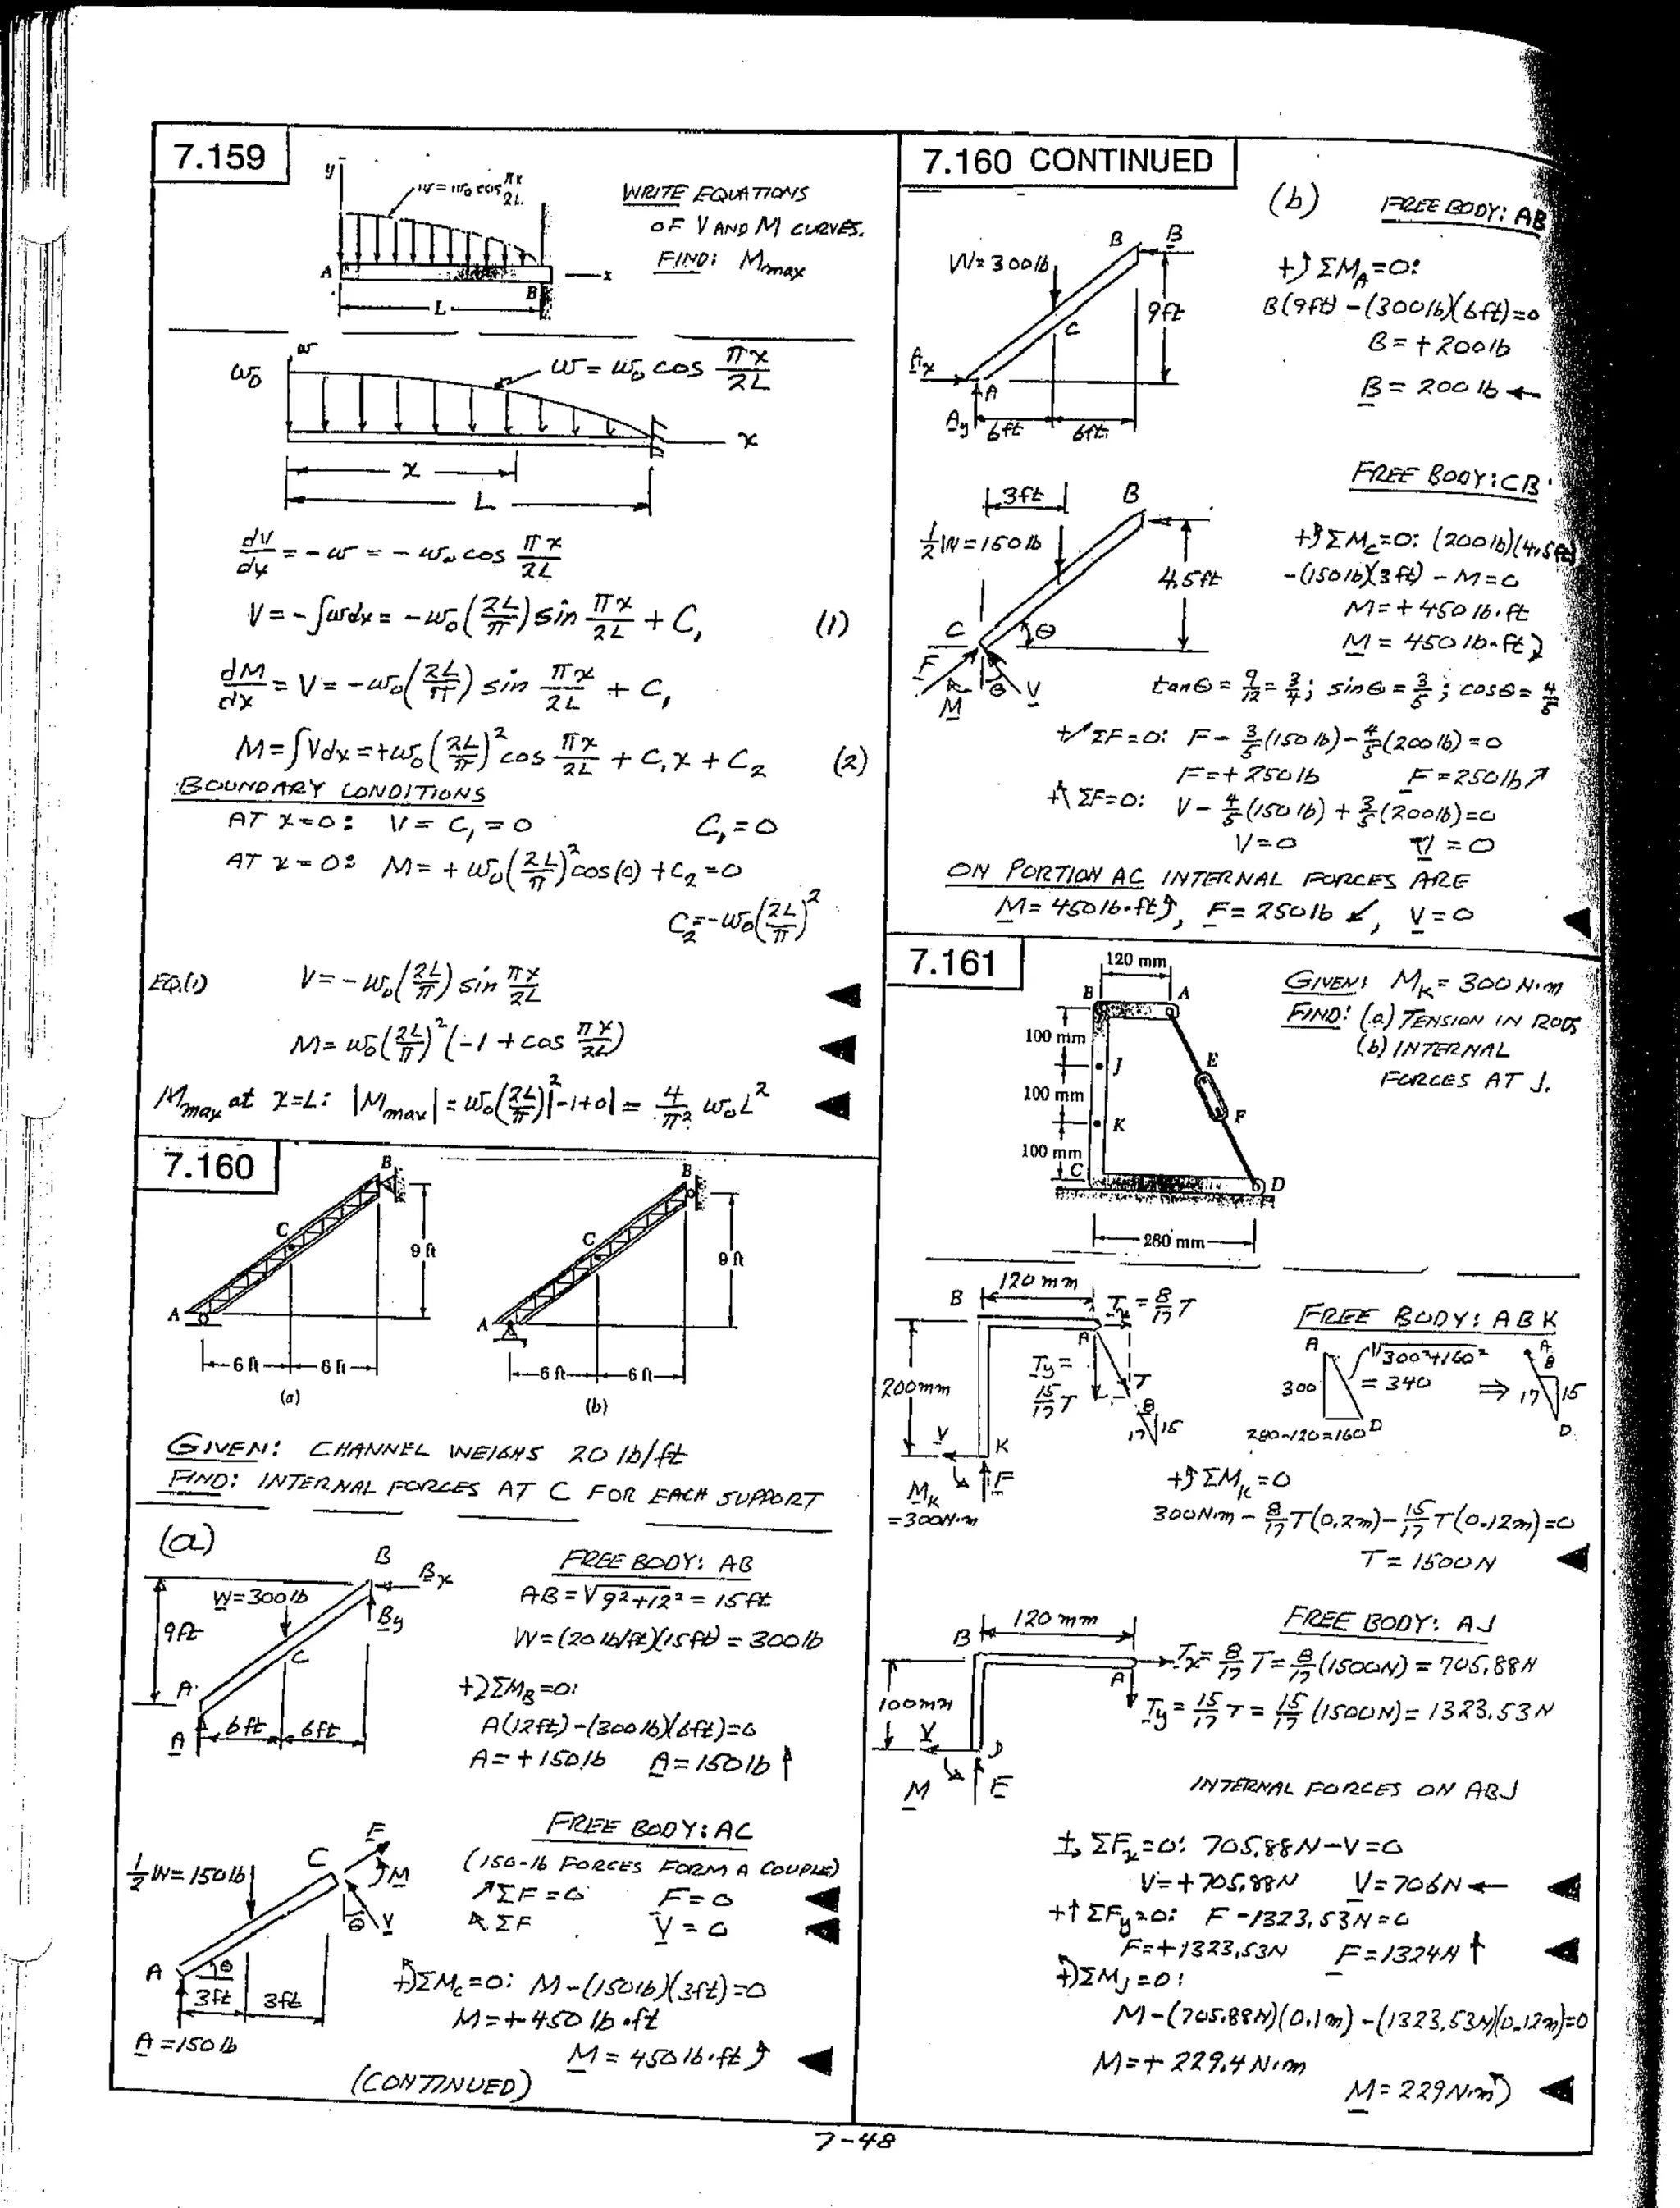 7.159
y
w = w₀ cos πx/2L
A
B
x
L
WRITE EQUATIONS
OF V AND M CURVES.
FIND: Mmax
w
w₀
w = w₀ cos πx/2L
x
x
L
dV/dx = -w = -w₀ cos πx/2L
V = -∫wdx = -w₀(2L/π) sin πx/2L + C₁ (1)
dM/dx = V = -w₀(2L/π) sin πx/2L + C₁
M = ∫Vdx = +w₀(2L/π)² cos πx/2L + C₁x + C₂ (2)
BOUNDARY CONDITIONS
AT x=0: V = C₁ = 0 C₁ = 0
AT x=0: M = +w₀(2L/π)² cos(0) + C₂ = 0
C₂ = -w₀(2L/π)²
EQ.(1) V = -w₀(2L/π) sin πx/2L ◀
M = w₀(2L/π)²(-1 + cos πx/2L) ◀
Mmax at x=L: |Mmax| = w₀(2L/π)²|-1+0| = 4/π² w₀L² ◀
7.160
B
C
A
9 ft
6 ft 6 ft
(a)
B
C
A
9 ft
6 ft 6 ft
(b)
GIVEN: CHANNEL WEIGHS 20 lb/ft
FIND: INTERNAL FORCES AT C FOR EACH SUPPORT
(a)
B
Bx
W=300lb
By
9ft
C
A
A
6ft 6ft
FREE BODY: AB
AB = √9²+12² = 15ft
W = (20 lb/ft)(15ft) = 300lb
+⤸ΣM_B=0:
A(12ft)-(300lb)(6ft)=0
A=+150lb A=150lb ↑
F
C
M
½W=150lb
θ
V
A
θ
3ft 3ft
A=150lb
FREE BODY: AC
(150-lb FORCES FORM A COUPLE)
↗ΣF=0 F=0 ◀
↖ΣF V=0 ◀
+⤹ΣM_C=0: M-(150lb)(3ft)=0
M=+450 lb·ft
M=450 lb·ft ⤴ ◀
(CONTINUED)
7.160 CONTINUED
(b)
FREE BODY: AB
B
B
W=300lb
9ft
C
Ax
A
Ay
6ft 6ft
+⤹ΣM_A=0:
B(9ft)-(300lb)(6ft)=0
B=+200lb
B=200 lb ←
FREE BODY: CB
3ft
B
½W=150lb
4.5ft
C
θ
F
M
θ
V
+⤹ΣM_C=0: (200lb)(4.5ft)
-(150lb)(3ft)-M=0
M=+450 lb·ft
M=450 lb·ft ⤵
tanθ = 9/12 = 3/4; sinθ = 3/5; cosθ = 4/5
+↗ΣF=0: F - 3/5(150 lb) - 4/5(200 lb) = 0
F=+250lb F=250lb↗
+↖ΣF=0: V - 4/5(150 lb) + 3/5(200lb) = 0
V=0 V=0
ON PORTION AC INTERNAL FORCES ARE
M=450lb·ft⤴, F=250lb↙, V=0 ◀
7.161
120 mm
B
A
100 mm
J
100 mm
K
100 mm
C
E
F
D
280 mm
GIVEN: M_K = 300 N·m
FIND: (a) TENSION IN RODS
(b) INTERNAL
FORCES AT J.
120 mm
B
Tx = 8/17 T
A
Ty =
15/17 T
T
8
17
15
200mm
V
K
F
M_K
=300N·m
FREE BODY: ABK
A
√300²+160²
= 340
300
280-120=160
D
⇒
A
8
17
15
D
+⤹ΣM_K=0
300N·m - 8/17 T(0.2m) - 15/17 T(0.12m) = 0
T=1500N ◀
120 mm
B
A
100mm
V
J
M
F
FREE BODY: AJ
Tx = 8/17 T = 8/17 (1500N) = 705.88N
Ty = 15/17 T = 15/17 (1500N) = 1323.53N
INTERNAL FORCES ON ABJ
+→ ΣFx=0: 705.88N-V=0
V=+705.88N V=706N← ◀
+↑ΣFy=0: F-1323.53N=0
F=+1323.53N F=1324N↑ ◀
+⤹ΣM_J=0:
M-(705.88N)(0.1m)-(1323.53N)(0.12m)=0
M=+229.4N·m
M=229N·m⤴ ◀
7-48